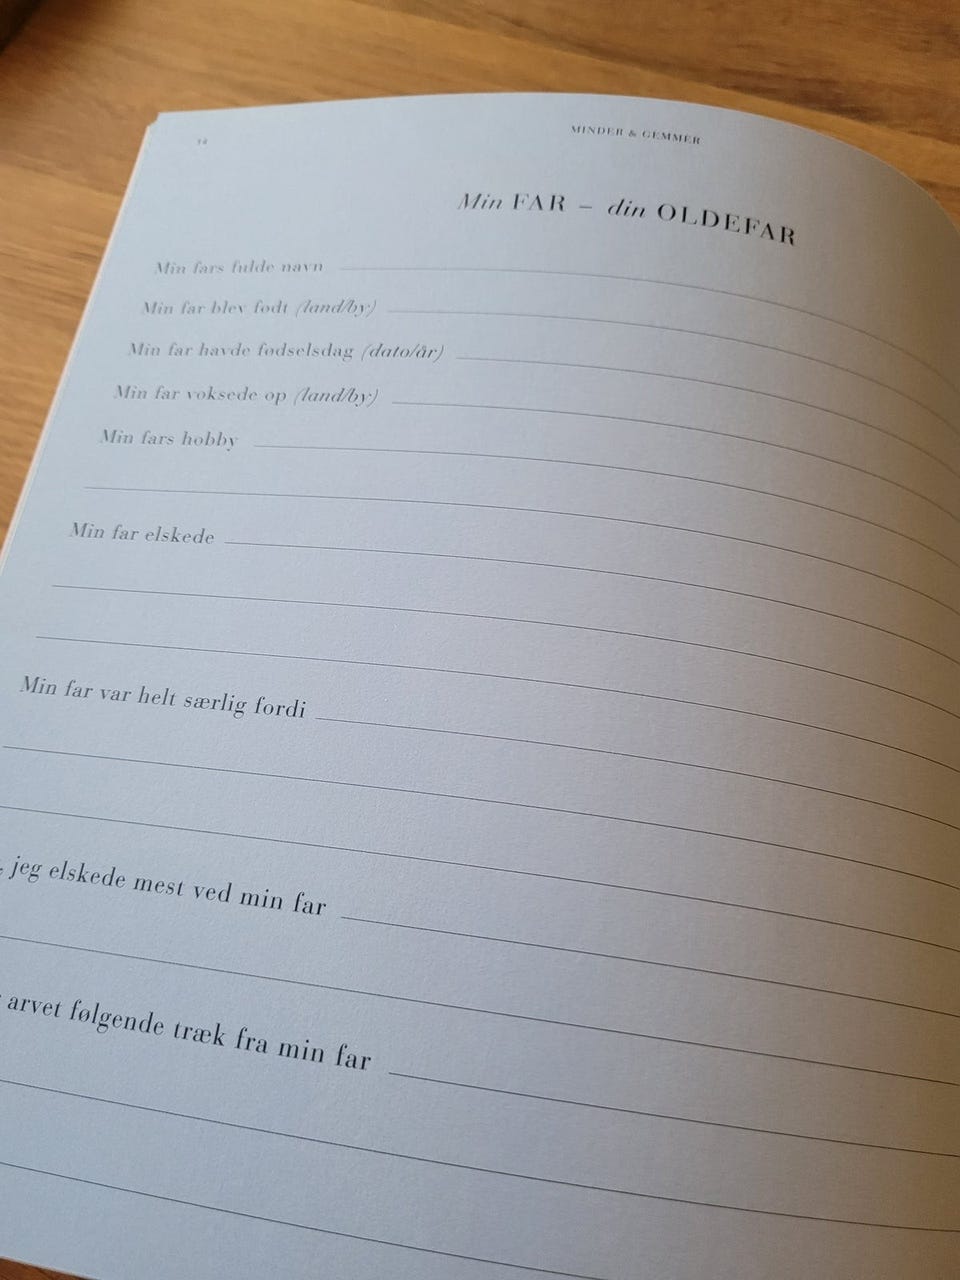 MINDER & GEMMER
Min FAR – din OLDEFAR
Min fars fulde navn
Min far blev født (land/by)
Min far havde fødselsdag (dato/år)
Min far voksede op (land/by)
Min fars hobby
Min far elskede
Min far var helt særlig fordi
jeg elskede mest ved min far
arvet følgende træk fra min far